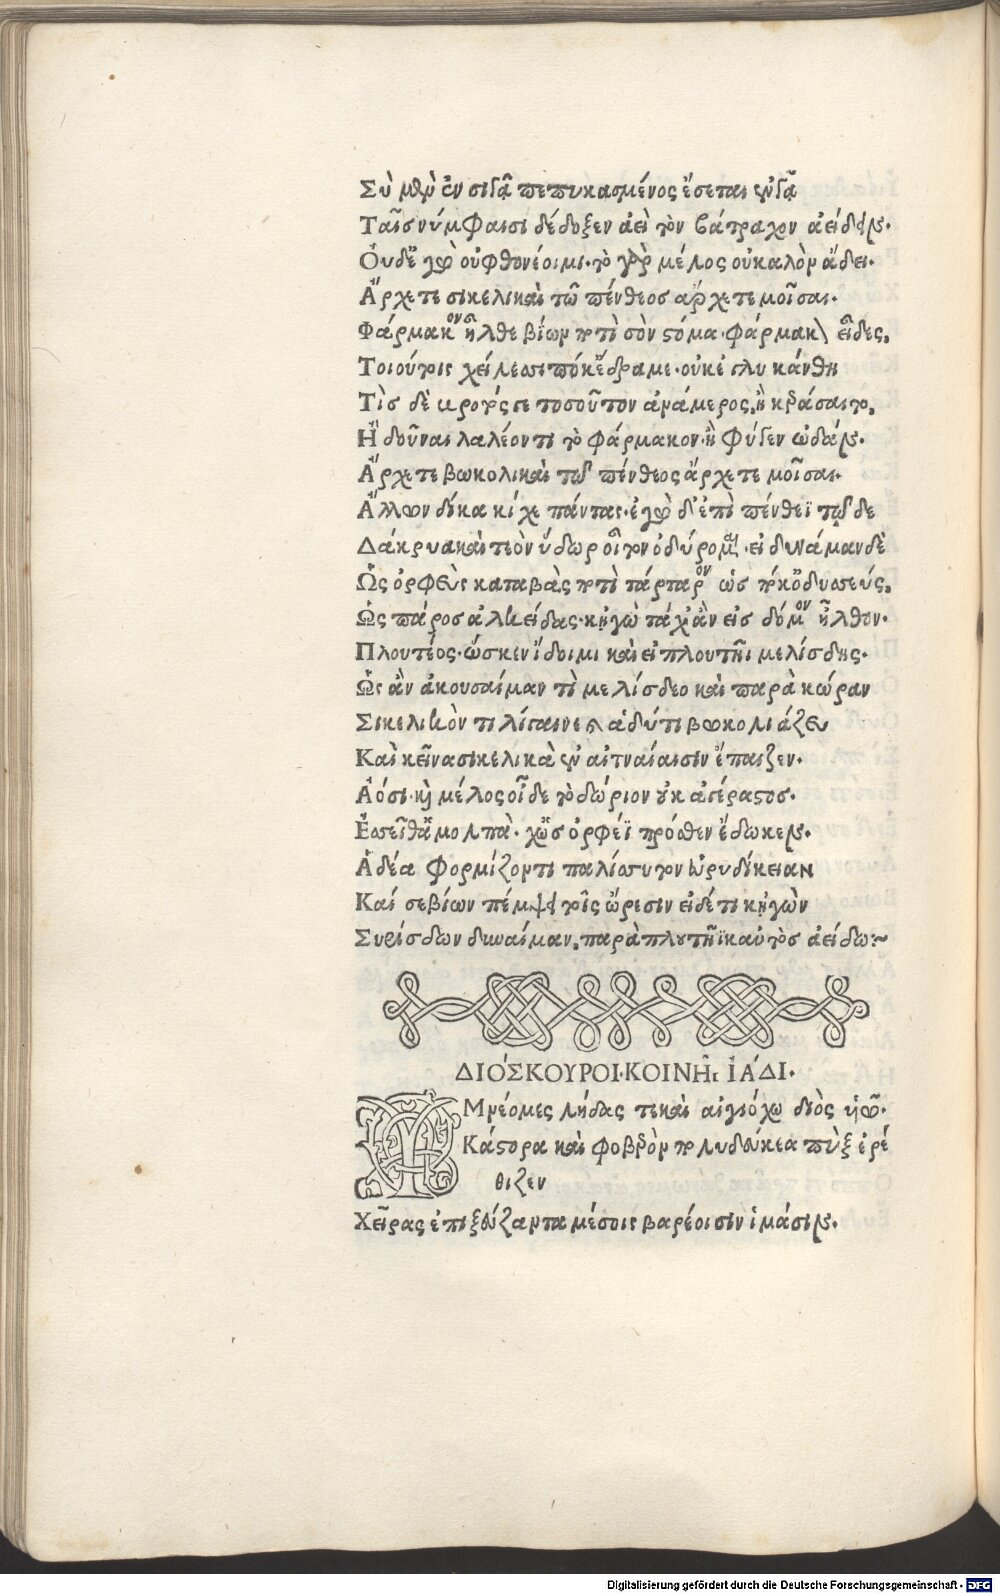 Σὺ μὲν ἐν σιγᾷ πεπυκασμένος ἔσεται ἐν γᾷ
Ταῖς νύμφαισι δέδοξεν ἀεὶ τὸν βάτραχον ἀείδειν.
Οὐδ' ἐγὼ οὐ φθονέοιμι. τὸ γὰρ μέλος οὐ καλὸν ᾄδει.
Ἄρχετε σικελικαὶ τῶ πένθεος ἄρχετε μοῖσαι.
Φάρμακον ἦλθε βίων ποτὶ σὸν στόμα. φάρμακον εἶδες,
Τοιούτοις χείλεσσι ποτέδραμε. οὐκ ἐγλυκάνθη
Τὶς δὲ βροτός τοσοῦτον ἀνάμερος, ἢ κεράσαι τοι,
Ἢ δοῦναι λαλέοντι τὸ φάρμακον. ἢ φύγεν ᾠδάν.
Ἄρχετε βωκολικαὶ τῶ πένθεος ἄρχετε μοῖσαι.
Ἄλλων δίκα κίχε πάντας. ἐγὼ δ' ἐπὶ πένθεϊ τῷδε
Δάκρυα καὶ τεὸν ὀδύρομαι. εἰ δυνάμαν δὲ
Ὡς ὀρφεὺς καταβὰς ποτὶ τάρταρον ὡς ποκ' ὀδυσσεύς,
Ὡς πάρος ἀλκείδας. κᾐγὼ τάχ' ἂν εἰς δόμον ἦλθον.
Πλουτέος. ὥς κεν ἴδοιμι καὶ εἰ πλουτῆϊ μελίσδῃς.
Ὡς ἂν ἀκουσαίμαν τὶ μελίσδεο καὶ παρὰ κώραν
Σικελικὸν τι λίγαινε βωκολιάζευ
Καὶ κεῖνα σικελικὰ ἐν αἰτναίαισιν ἔπαιζεν.
Ἀόσι. καὶ μέλος οἶδε τὸ δώριον οὐκ ἀγέραστος.
Ἐσσεῖθ' ἁ μολπὰ. χὣς ὀρφέϊ πρόσθεν ἔδωκεν.
Ἁδέα φορμίζοντι παλίσσυτον εὐρυδίκειαν
Καί σε βίων πέμψει τοῖς ὤρεσιν εἰ δέ τι κᾐγὼν
Συρίσδων δυναίμαν, παρὰ πλουτῆϊ καὐτὸς ἀείδω~
ΔΙΟΣΚΟΥΡΟΙ. ΚΟΙΝΗ͂ι ἸΆΔΙ.
ΥΜνέομες λήδας τε καὶ αἰγιόχω διὸς υἱὼ.
Κάστορα καὶ φοβερὸν πολυδεύκεα πὺξ ἐρέ
θιζεν
Χεῖρας ἐπιζεύξαντα μέσοις βοέοισιν ἱμάσιν.